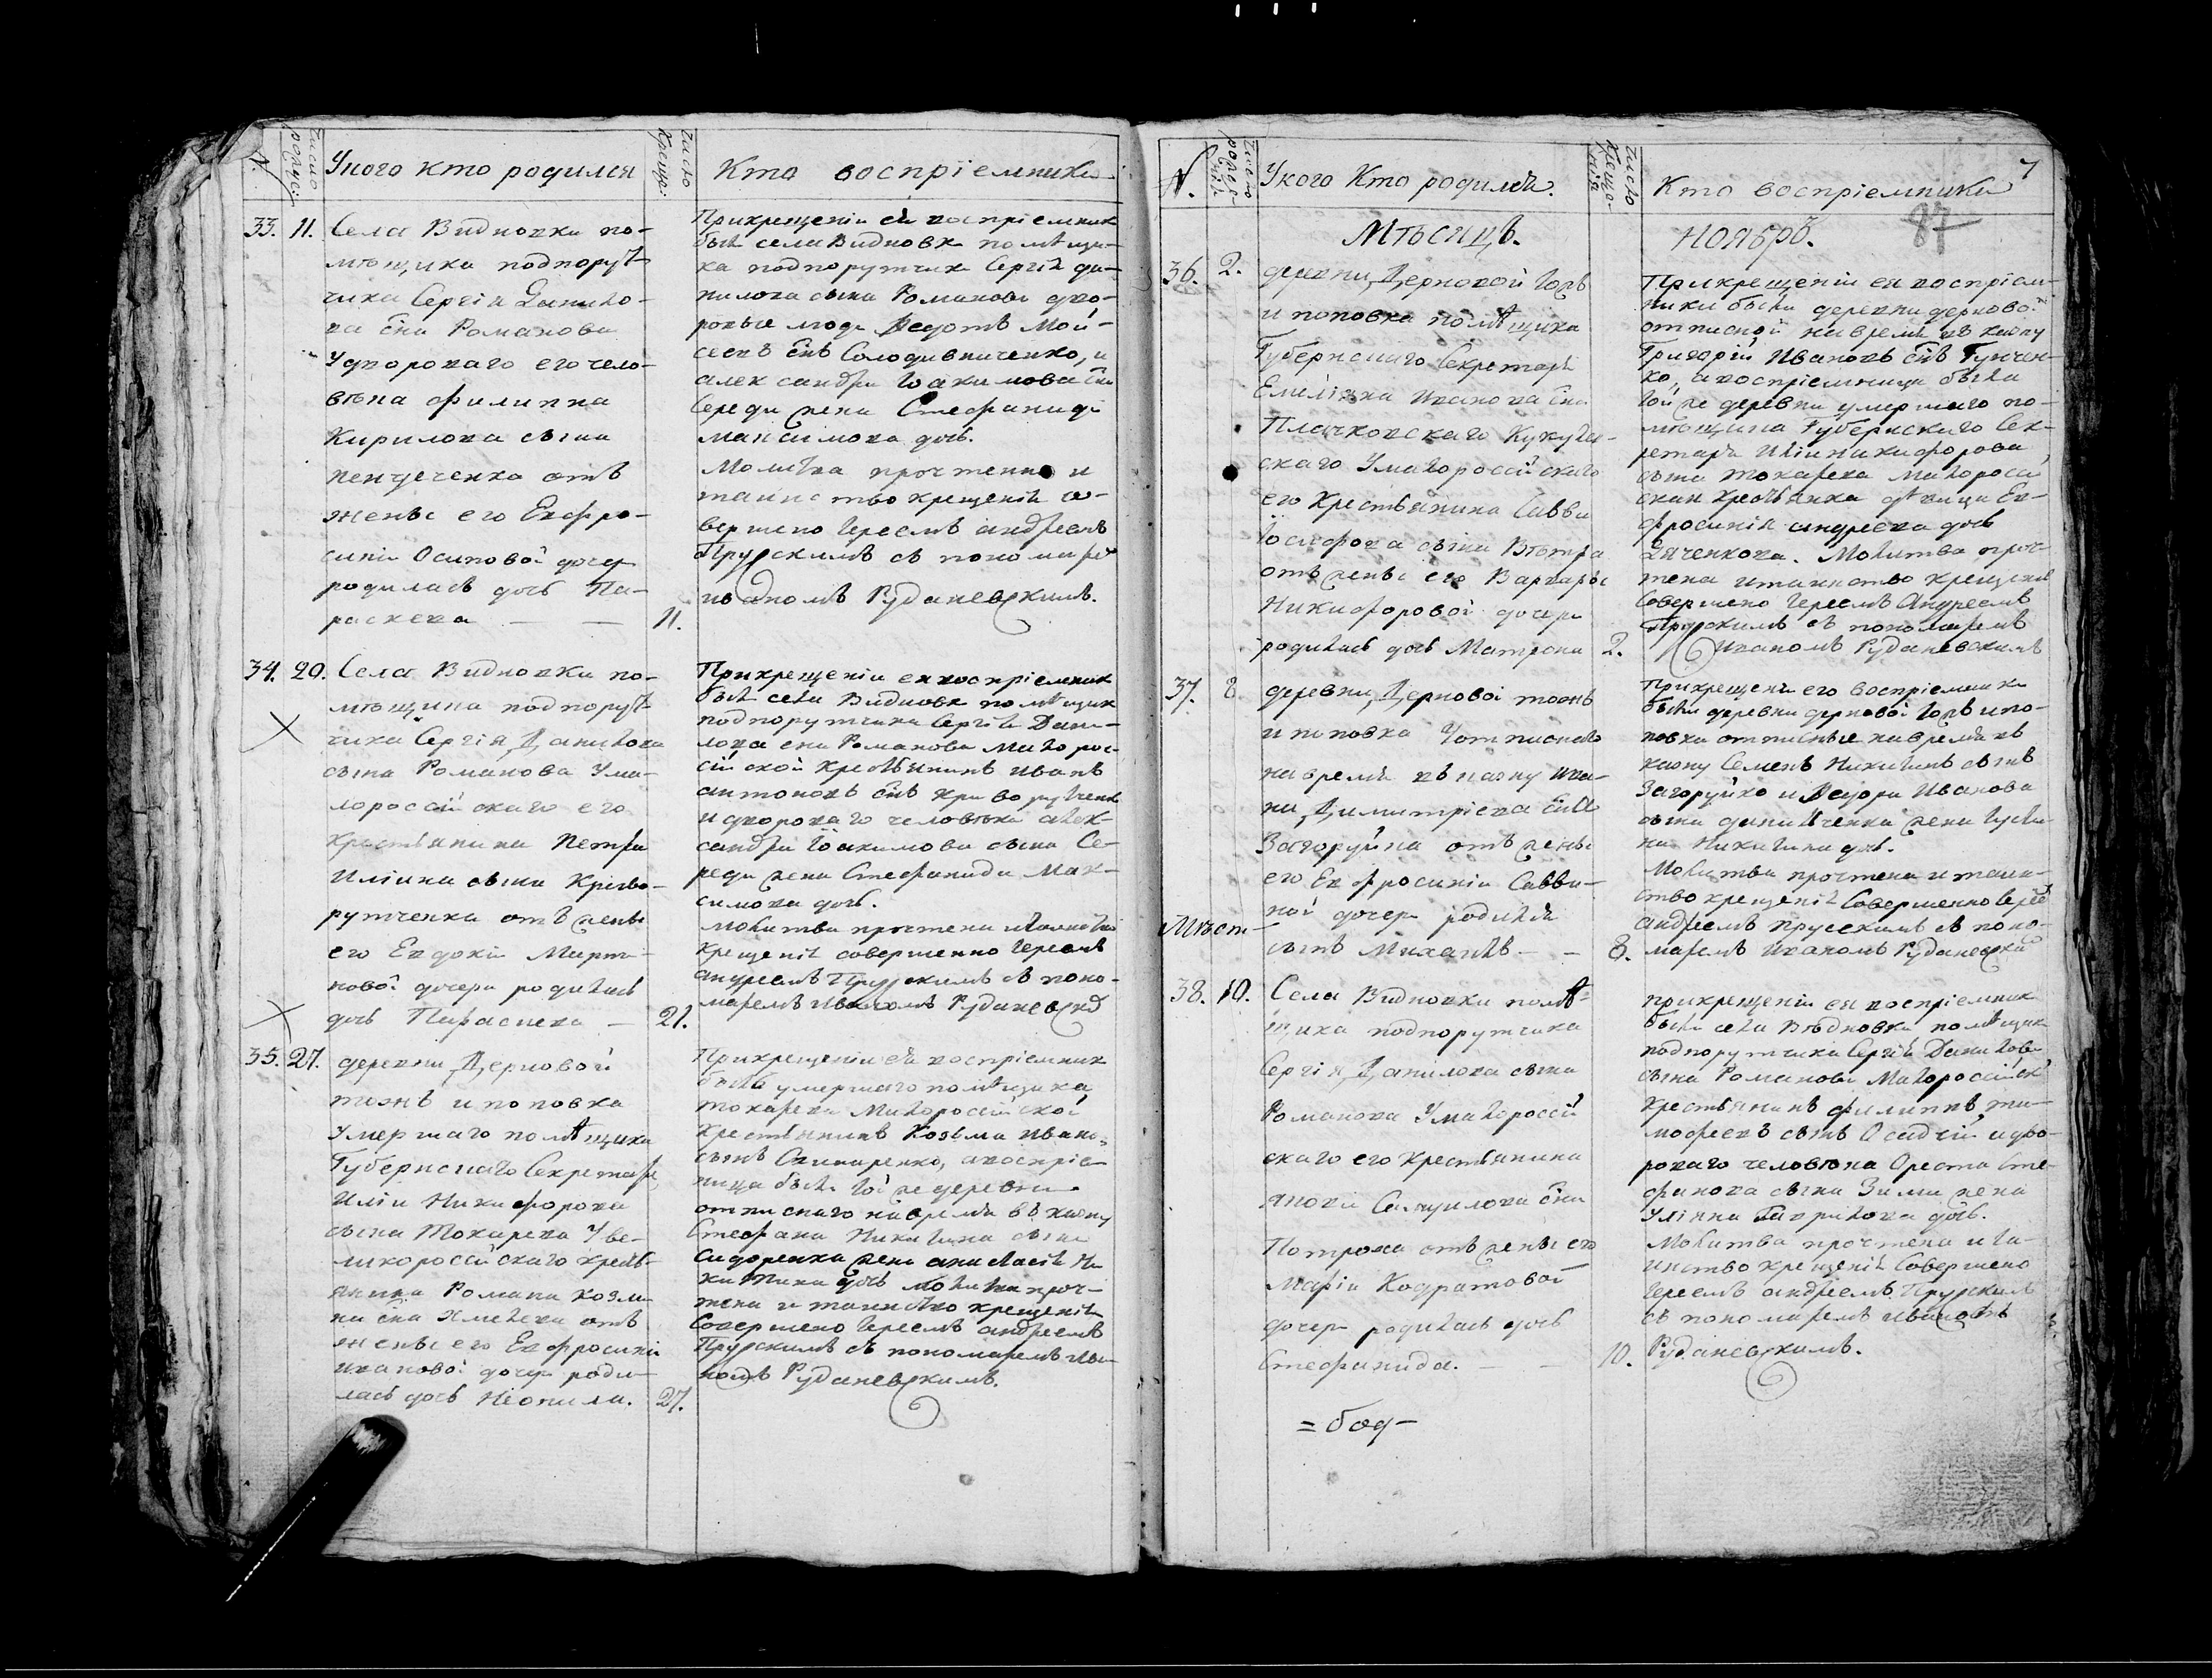 №.
Число рожде:
Укого кто родился
Число Креще:
Кто воспріемники
33. 11. Села Видновки по-
мѣщика подпорут-
чика Сергія Данило-
ва сна Романова
Удворового его чело-
вѣка филиппа
Кирилова сына
отъ
жены его Евфро-
синіи Осиповой дочер
родилась дочь Па-
раскева — — 11.
Прикрещеніи ея воспріемник
былъ села Видновки помѣщи-
ка подпорутчика Сергія да-
нилова сына Романова дво-
ровые люди Федотъ Мои-
сеевъ снъ Солодивниченко, и
александра Іоакимова сна
Середи жена Стефанида
максимова дочь.
Молитва прочтенна и
таинство крещенія со-
вершено Іереемъ андреемъ
Прускимъ съ пономаре
иваномъ Рудановскимъ.
34. 20. Села Видновки по-
мѣщика подпорут-
чика Сергія Данилова
сына Романова Ума-
лороссійскаго его
крестьянина Петра
Иліина сына Криво-
рутченка отъ жены
его Евдокіи Марти-
новой дочери родилась
дочь Параскева — 21.
Прикрещеніи ея воспріемник
былъ села Видновки помѣщик
подпорутчика Сергія Дани-
лова сна Романова малорос-
сійской крестьянинъ иванъ
антоновъ снъ Криворутченк
и дворового человѣка алек-
сандра Іоакимова сына Се-
реди жена Стефанида Мак-
симова дочь.
молитва прочтена и
крещеніе совершенно Іереемъ
андреемъ Прускимъ съ поно-
маремъ иваномъ Рудановскі
35. 27. деревни Дерновой
тожъ и поповка
Умершаго помѣщика
Губернскаго Секретаря
Иліи Никифорова
сына Токарева Уве-
ликороссійскаго крестъ-
янина Романа Козми-
на сна отъ
жены его Евфросиніи
ивановой дочери роди-
лась дочь Неонила. 27.
Прикрещеніи ея воспріемник
былъ умершаго помѣщика
токарева Малороссійской
Крестьянинъ Козьма ивано
сынъ авоспріе-
ница была той же деревни
отписнаго навремя въ казну
Стефана Никитина сына
Сидоренка жена анастасія Ни-
китина дочь молитва проч-
тена и таинство крещенія
Совершено Іереемъ андреемъ
Прускимъ съ пономаремъ ива-
номъ Рудановскимъ.
№.
Число рожде-
нія
Укого Кто родился.
Число Креще-
нія
Кто воспріемники
7
87
Мѣсяцъ.
Ноябрь.
36. 2. деревни Дерновой тожъ
и поповка помѣщика
Губернскаго Секретаря
Емеліана Иванова сна
Плачковскаго
скаго Умалороссійскаго
его Крестьянина Саввы
Іосифова сына
отъ жены его Варвары
Никифоровой дочери
родилась дочь Матрона 2.
Прикрещеніи ея воспріем-
ники были деревни дерновой
отписной навремя въ казну
Григорій Ивановъ снъ
ко, авоспріемница была
той же деревни умершаго по-
мѣщика Губернскаго Сек-
ретаря Иліи никифорова
сына токарева малоросій
ская крестьянка дѣвица Ев-
фросинія андреева дочь
Дяченкова. Молитва проч-
тена итаинство крещенія
Совершено Іереемъ Андреемъ
Прускимъ съ пономаремъ
Иваномъ Рудановскимъ
37. 8. деревни Дерновой тожъ
и поповка Уотписнаго
навремя въ казну ива-
на Димитріева сна
Загоруйка отъ жены
его Евфросиніи Савви-
ной дочери родился
сынъ Михаилъ — — 8.
Прикрещеніи его воспріемники
были деревни дерновой тожъ ипо-
повка отписные навремя въ
казну Семенъ Никитинъ сынъ
Загоруйко и Федора Иванова
сына жена
на Никитина дочь.
Молитва прочтена и таин-
ство крещенія Совершенно Іерее
андреемъ Прускимъ съ поно-
маремъ Иваномъ Рудановски
38. 10. Села Видновки помѣ-
щика подпорутчика
Сергія Данилова сына
Романова Умалороссій
скаго его крестьянина
якова Самуилова сна
Потрова отъ жены его
Маріи Кодратовой
дочери родилась дочь
Стефанида. — — 10.
прикрещеніи ея воспріемник
были села Видновки помѣщик
подпорутчика Сергія Данилова
сына Романова Малороссійск
крестьянинъ филиппъ ти-
мофеевъ сынъ Осадчій идво-
роваго человѣка Ореста Сте-
фанова сына Зими жена
Уліяна Гаврилова дочь.
Молитва прочтена и та-
инство крещенія Совершено
Іереемъ андреемъ Прускимъ
съ пономаремъ иваномъ
Рудановскимъ.